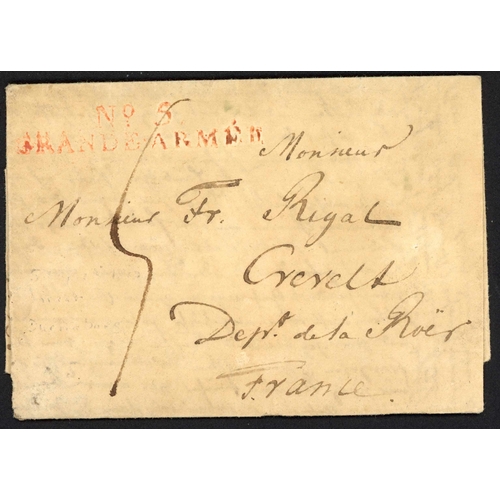 No 5
GRANDE ARMÉE
Monsieur
Monsieur Fr. Rigal
Crevelt
Dept. de la Roër
France.